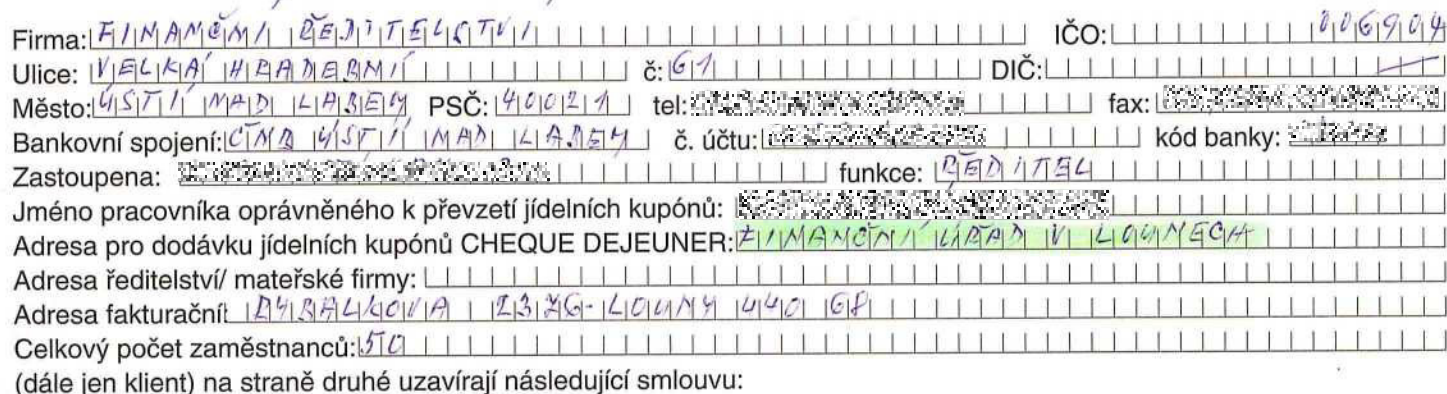 Firma: FINANČNÍ ŘEDITELSTVÍ IČO: 006904
Ulice: VELKÁ HRADEBNÍ č: 61 DIČ: —
Město: ÚSTÍ NAD LABEM PSČ: 40021 tel: fax:
Bankovní spojení: ČNB ÚSTÍ NAD LABEM č. účtu: kód banky:
Zastoupena: funkce: ŘEDITEL
Jméno pracovníka oprávněného k převzetí jídelních kupónů:
Adresa pro dodávku jídelních kupónů CHEQUE DEJEUNER: FINANČNÍ ÚŘAD V LOUNECH
Adresa ředitelství/ mateřské firmy:
Adresa fakturační: RYBALKOVA LOUNY 440 68
Celkový počet zaměstnanců: 50
(dále jen klient) na straně druhé uzavírají následující smlouvu: